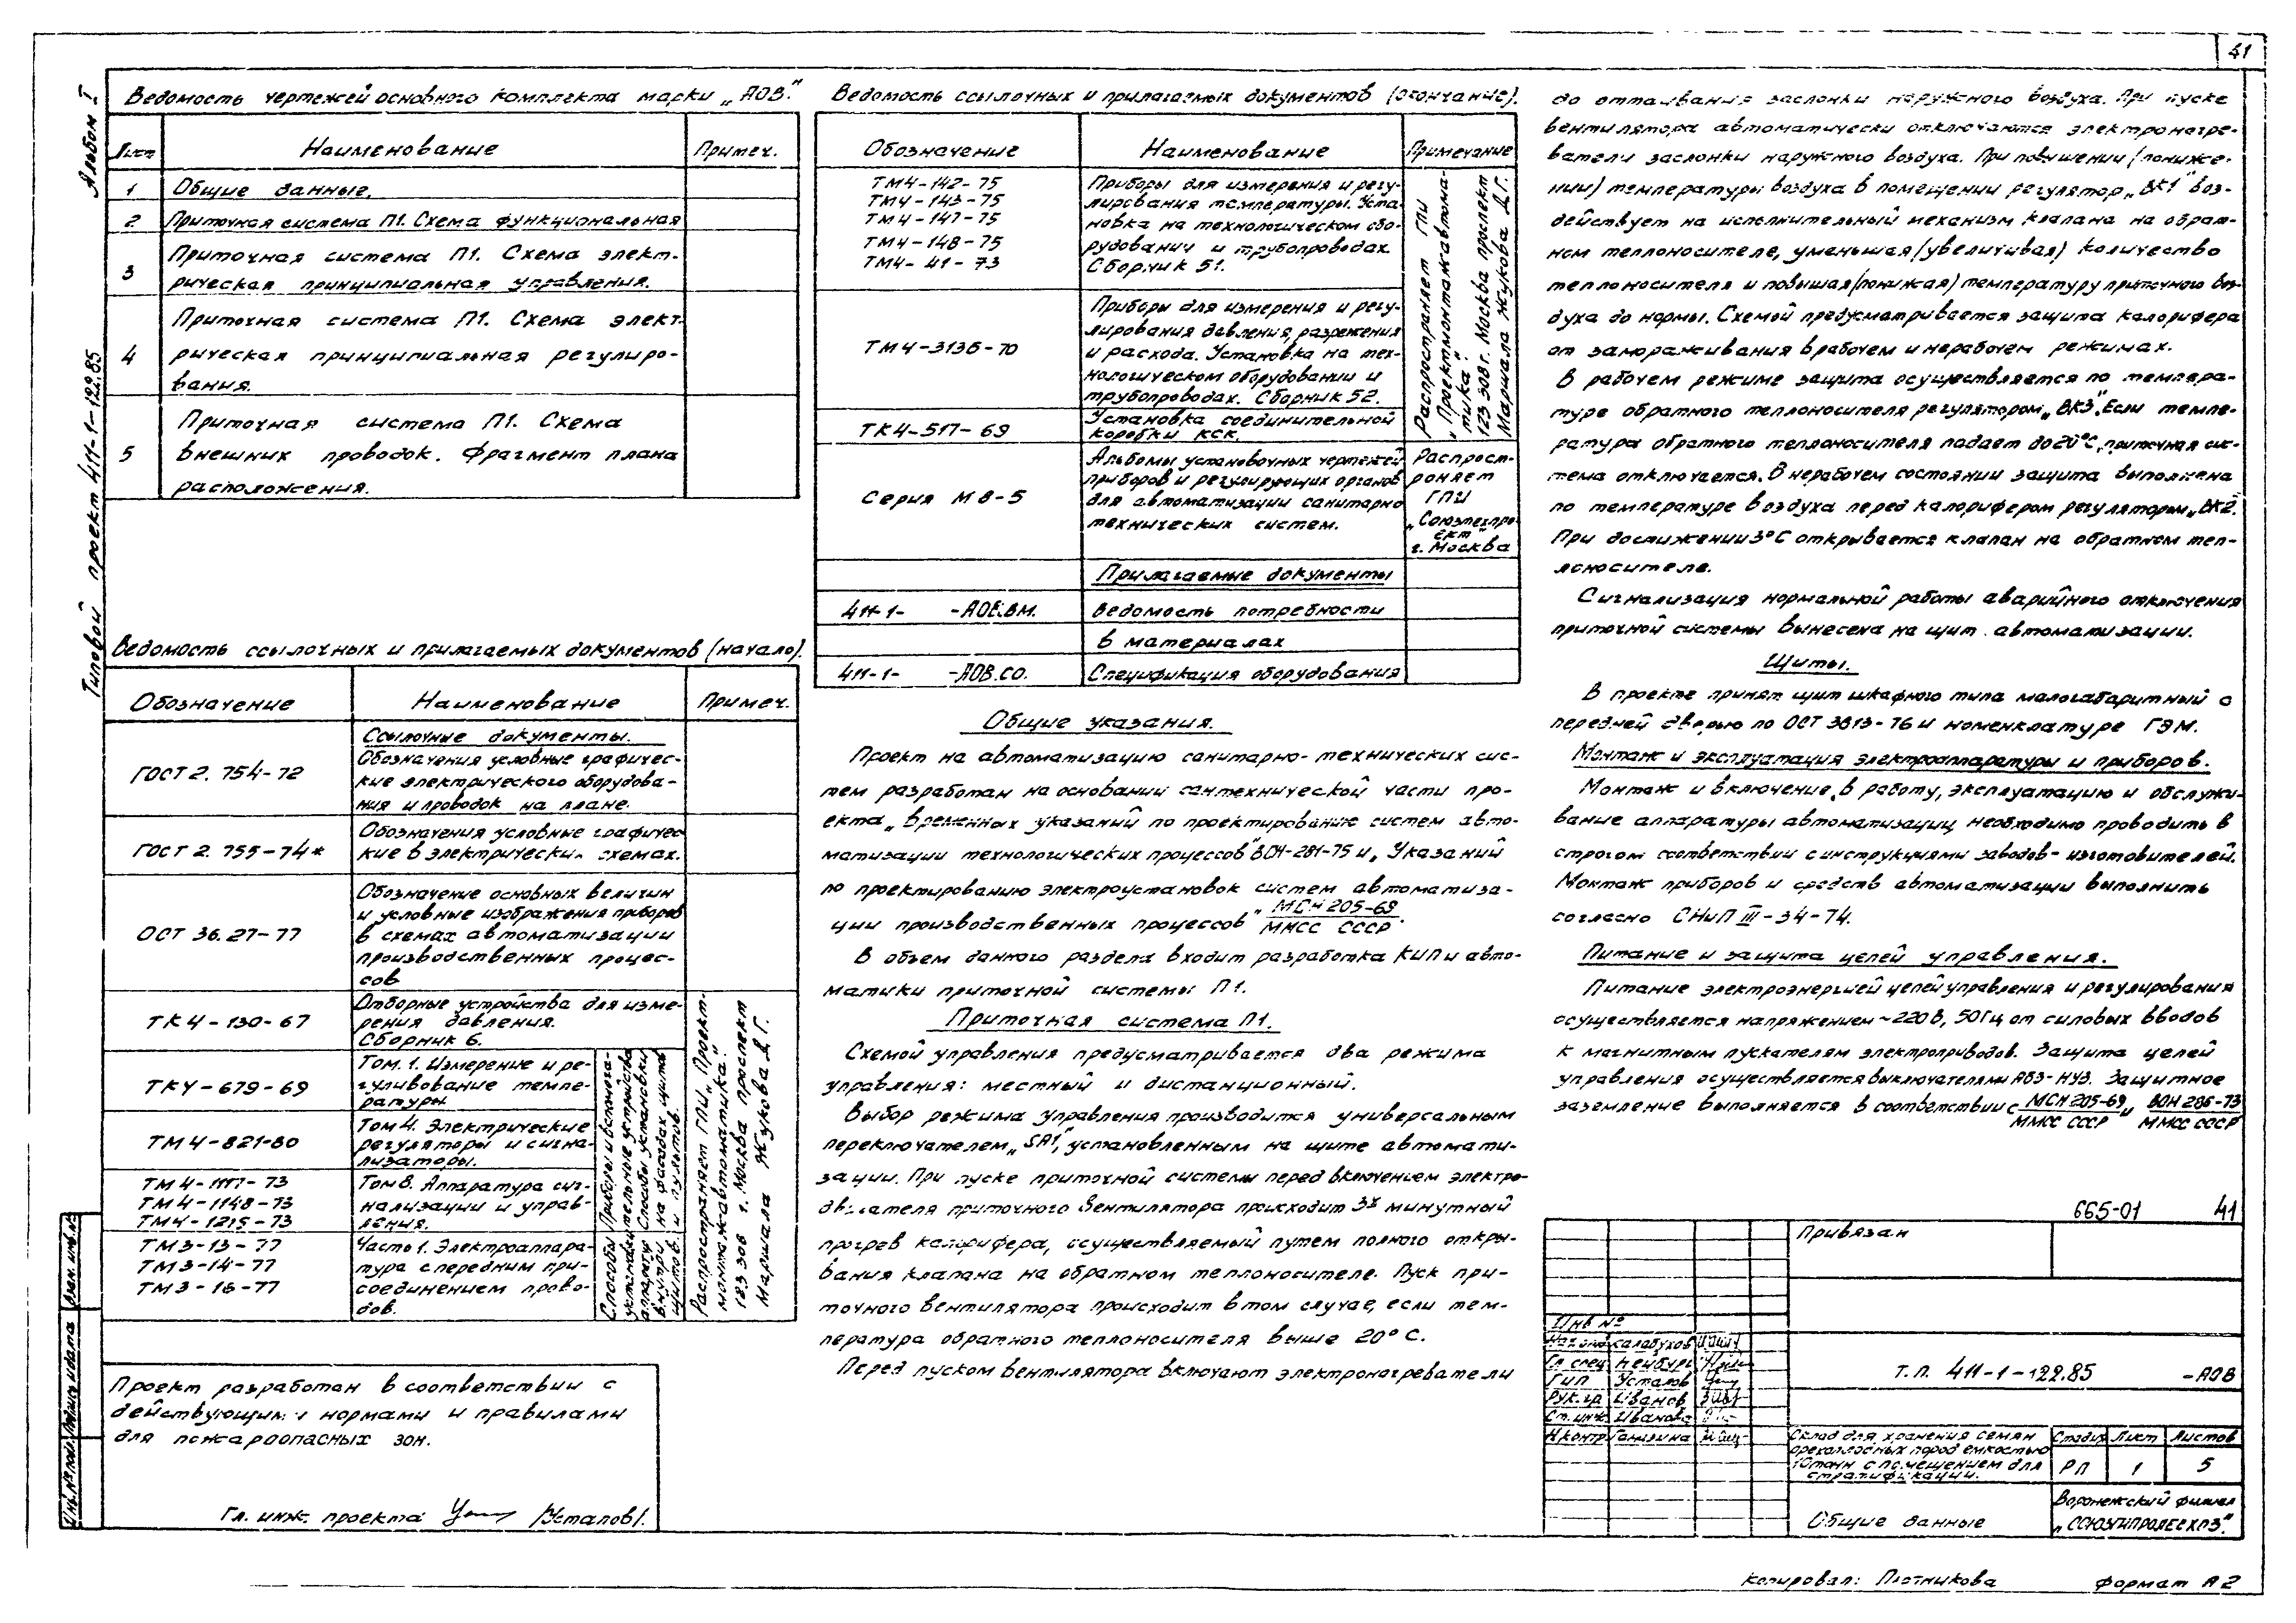 41
Альбом I
Типовой проект 411-1-122.85
Ведомость чертежей основного комплекта марки „АОВ".
Лист Наименование Примеч.
1 Общие данные.
2 Приточная система П1. Схема функциональная
3 Приточная система П1. Схема элект-
рическая принципиальная управления.
4 Приточная система П1. Схема элект-
рическая принципиальная регулиро-
вания.
5 Приточная система П1. Схема
внешних проводок. Фрагмент плана
расположения.
Ведомость ссылочных и прилагаемых документов (начало).
Обозначение Наименование Примеч.
Ссылочные документы.
ГОСТ 2.754-72 Обозначения условные графичес-
кие электрического оборудова-
ния и проводок на плане.
ГОСТ 2.755-74* Обозначения условные графичес
кие в электрических схемах.
ОСТ 36.27-77 Обозначение основных величин
и условные изображения приборов
в схемах автоматизации
производственных процес-
сов
ТК4-130-67 Отборные устройства для изме-
рения давления.
Сборник 6.
ТКУ-679-69 Том. 1. Измерение и ре-
гулирование темпе-
ратуры
ТМ4-821-80 Том 4. Электрические
регуляторы и сигна-
лизаторы.
ТМ4-1147-73
ТМ4-1148-73
ТМ4-1215-73
Том 8. Аппаратура сиг-
нализации и управ-
ления.
ТМ3-13-77
ТМ3-14-77
ТМ3-16-77
Часть 1. Электроаппара-
тура с передним при-
соединением прово-
дов.
Приборы и вспомога-
тельные устройства
Способы установки
на фасадах щитов
и пультов.
Способы
установки
аппаратуры
внутри
щитов
Распространяет ГПИ „Проект-
монтажавтоматика"
123308 г. Москва проспект
Маршала Жукова Д.Г.
Проект разработан в соответствии с
действующими нормами и правилами
для пожароопасных зон.
Гл. инж. проекта /Усталов/.
Ведомость ссылочных и прилагаемых документов (окончание).
Обозначение Наименование Примечание
ТМ4-142-75
ТМ4-143-75
ТМ4-147-75
ТМ4-148-75
ТМ4-41-73
Приборы для измерения и регу-
лирования температуры. Уста-
новка на технологическом обо-
рудовании и трубопроводах.
Сборник 51.
ТМ4-3136-70 Приборы для измерения и регу-
лирования давления, разрежения
и расхода. Установка на тех-
нологическом оборудовании и
трубопроводах. Сборник 52.
ТК4-517-69 Установка соединительной
коробки КСК.
Распространяет ГПИ
„Проектмонтажавтома-
тика".
123308 г. Москва проспект
Маршала Жукова Д.Г.
Серия М8-5 Альбомы установочных чертежей
приборов и регулирующих органов
для автоматизации санитарно
технических систем.
Распрост-
роняет
ГПИ
„Союзтехпро-
ект"
г. Москва
Прилагаемые документы
411-1- -АОВ.ВМ. Ведомость потребности
в материалах
411-1- -АОВ.СО. Спецификация оборудования
Общие указания.
Проект на автоматизацию санитарно-технических сис-
тем разработан на основании сантехнической части про-
екта „Временных указаний по проектированию систем авто-
матизации технологических процессов" ВСН-281-75 и „Указаний
по проектированию электроустановок систем автоматиза-
ции производственных процессов" МСН 205-69 / ММСС СССР.
В объем данного раздела входит разработка КИП и авто-
матики приточной системы П1.
Приточная система П1.
Схемой управления предусматривается два режима
управления: местный и дистанционный.
Выбор режима управления производится универсальным
переключателем „SA1", установленным на щите автомати-
зации. При пуске приточной системы перед включением электро-
двигателя приточного вентилятора происходит 3х минутный
прогрев калорифера, осуществляемый путем полного откры-
вания клапана на обратном теплоносителе. Пуск при-
точного вентилятора происходит в том случае, если тем-
пература обратного теплоносителя выше 20°С.
Перед пуском вентилятора включают электронагреватели
до оттаивания заслонки наружного воздуха. При пуске
вентилятора автоматически отключаются электронагре-
ватели заслонки наружного воздуха. При повышении (пониже-
нии) температуры воздуха в помещении регулятор „ВК1" воз-
действует на исполнительный механизм клапана на обрат-
ном теплоносителе, уменьшая (увеличивая) количество
теплоносителя и повышая (понижая) температуру приточного воз-
духа до нормы. Схемой предусматривается защита калорифера
от замораживания в рабочем и нерабочем режимах.
В рабочем режиме защита осуществляется по темпера-
туре обратного теплоносителя регулятором „ВК3". Если темпе-
ратура обратного теплоносителя падает до 20°С, приточная сис-
тема отключается. В нерабочем состоянии защита выполнена
по температуре воздуха перед калорифером регулятором „ВК2".
При достижении 3°С открывается клапан на обратном теп-
лоносителе.
Сигнализация нормальной работы аварийного отключения
приточной системы вынесена на щит автоматизации.
Щиты.
В проекте принят щит шкафного типа малогабаритный с
передней дверью по ОСТ 3613-76 и номенклатуре ГЭМ.
Монтаж и эксплуатация электроаппаратуры и приборов.
Монтаж и включение в работу, эксплуатацию и обслужи-
вание аппаратуры автоматизации необходимо проводить в
строгом соответствии с инструкциями заводов-изготовителей.
Монтаж приборов и средств автоматизации выполнить
согласно СНиП III-34-74.
Питание и защита цепей управления.
Питание электроэнергией цепей управления и регулирования
осуществляется напряжением ~220В, 50Гц от силовых вводов
к магнитным пускателям электроприводов. Защита цепей
управления осуществляется выключателями АБ3-НУЗ. Защитное
заземление выполняется в соответствии с МСН 205-69 / ММСС СССР и ВСН 286-73 / ММСС СССР
665-01 41
Привязан
Инв №
Салабухов
Гл. спец. Нембург
ГИП Усталов
Рук. гр. Иванов
Ст. инж. Иванова
Н. контр. Ганизина
Т.П. 411-1-122.85 -АОВ
Склад для хранения семян
орехоплодных пород емкостью
10 тонн с помещением для
стратификации.
Стадия Лист Листов
РП 1 5
Общие данные
Воронежский филиал
„СОЮЗГИПРОЛЕСХОЗ".
Инв. № подл. Подпись и дата Взам. инв. №
Копировал: Плотникова Формат А2